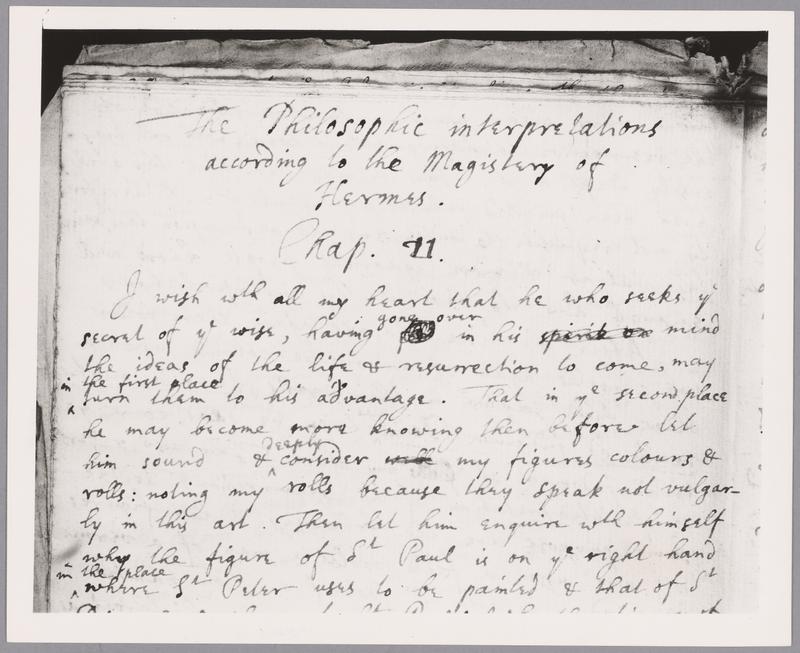 The Philosophic interpretations
according to the Magistery of
Hermes.
Chap. 11.
I wish wth all my heart that he who seeks ye
gone over
secret of ye wise, having in his spirit on mind
the ideas of the life & resurrection to come, may
in the first place
turn them to his advantage. That in ye second place
he may become more knowing then before let
deeply
him sound & consider well my figures colours &
rolls: noting my rolls because they speak not vulgar-
ly in this art. Then let him enquire wth himself
why the figure of St Paul is on ye right hand
in the place
where St Peter uses to be painted & that of St